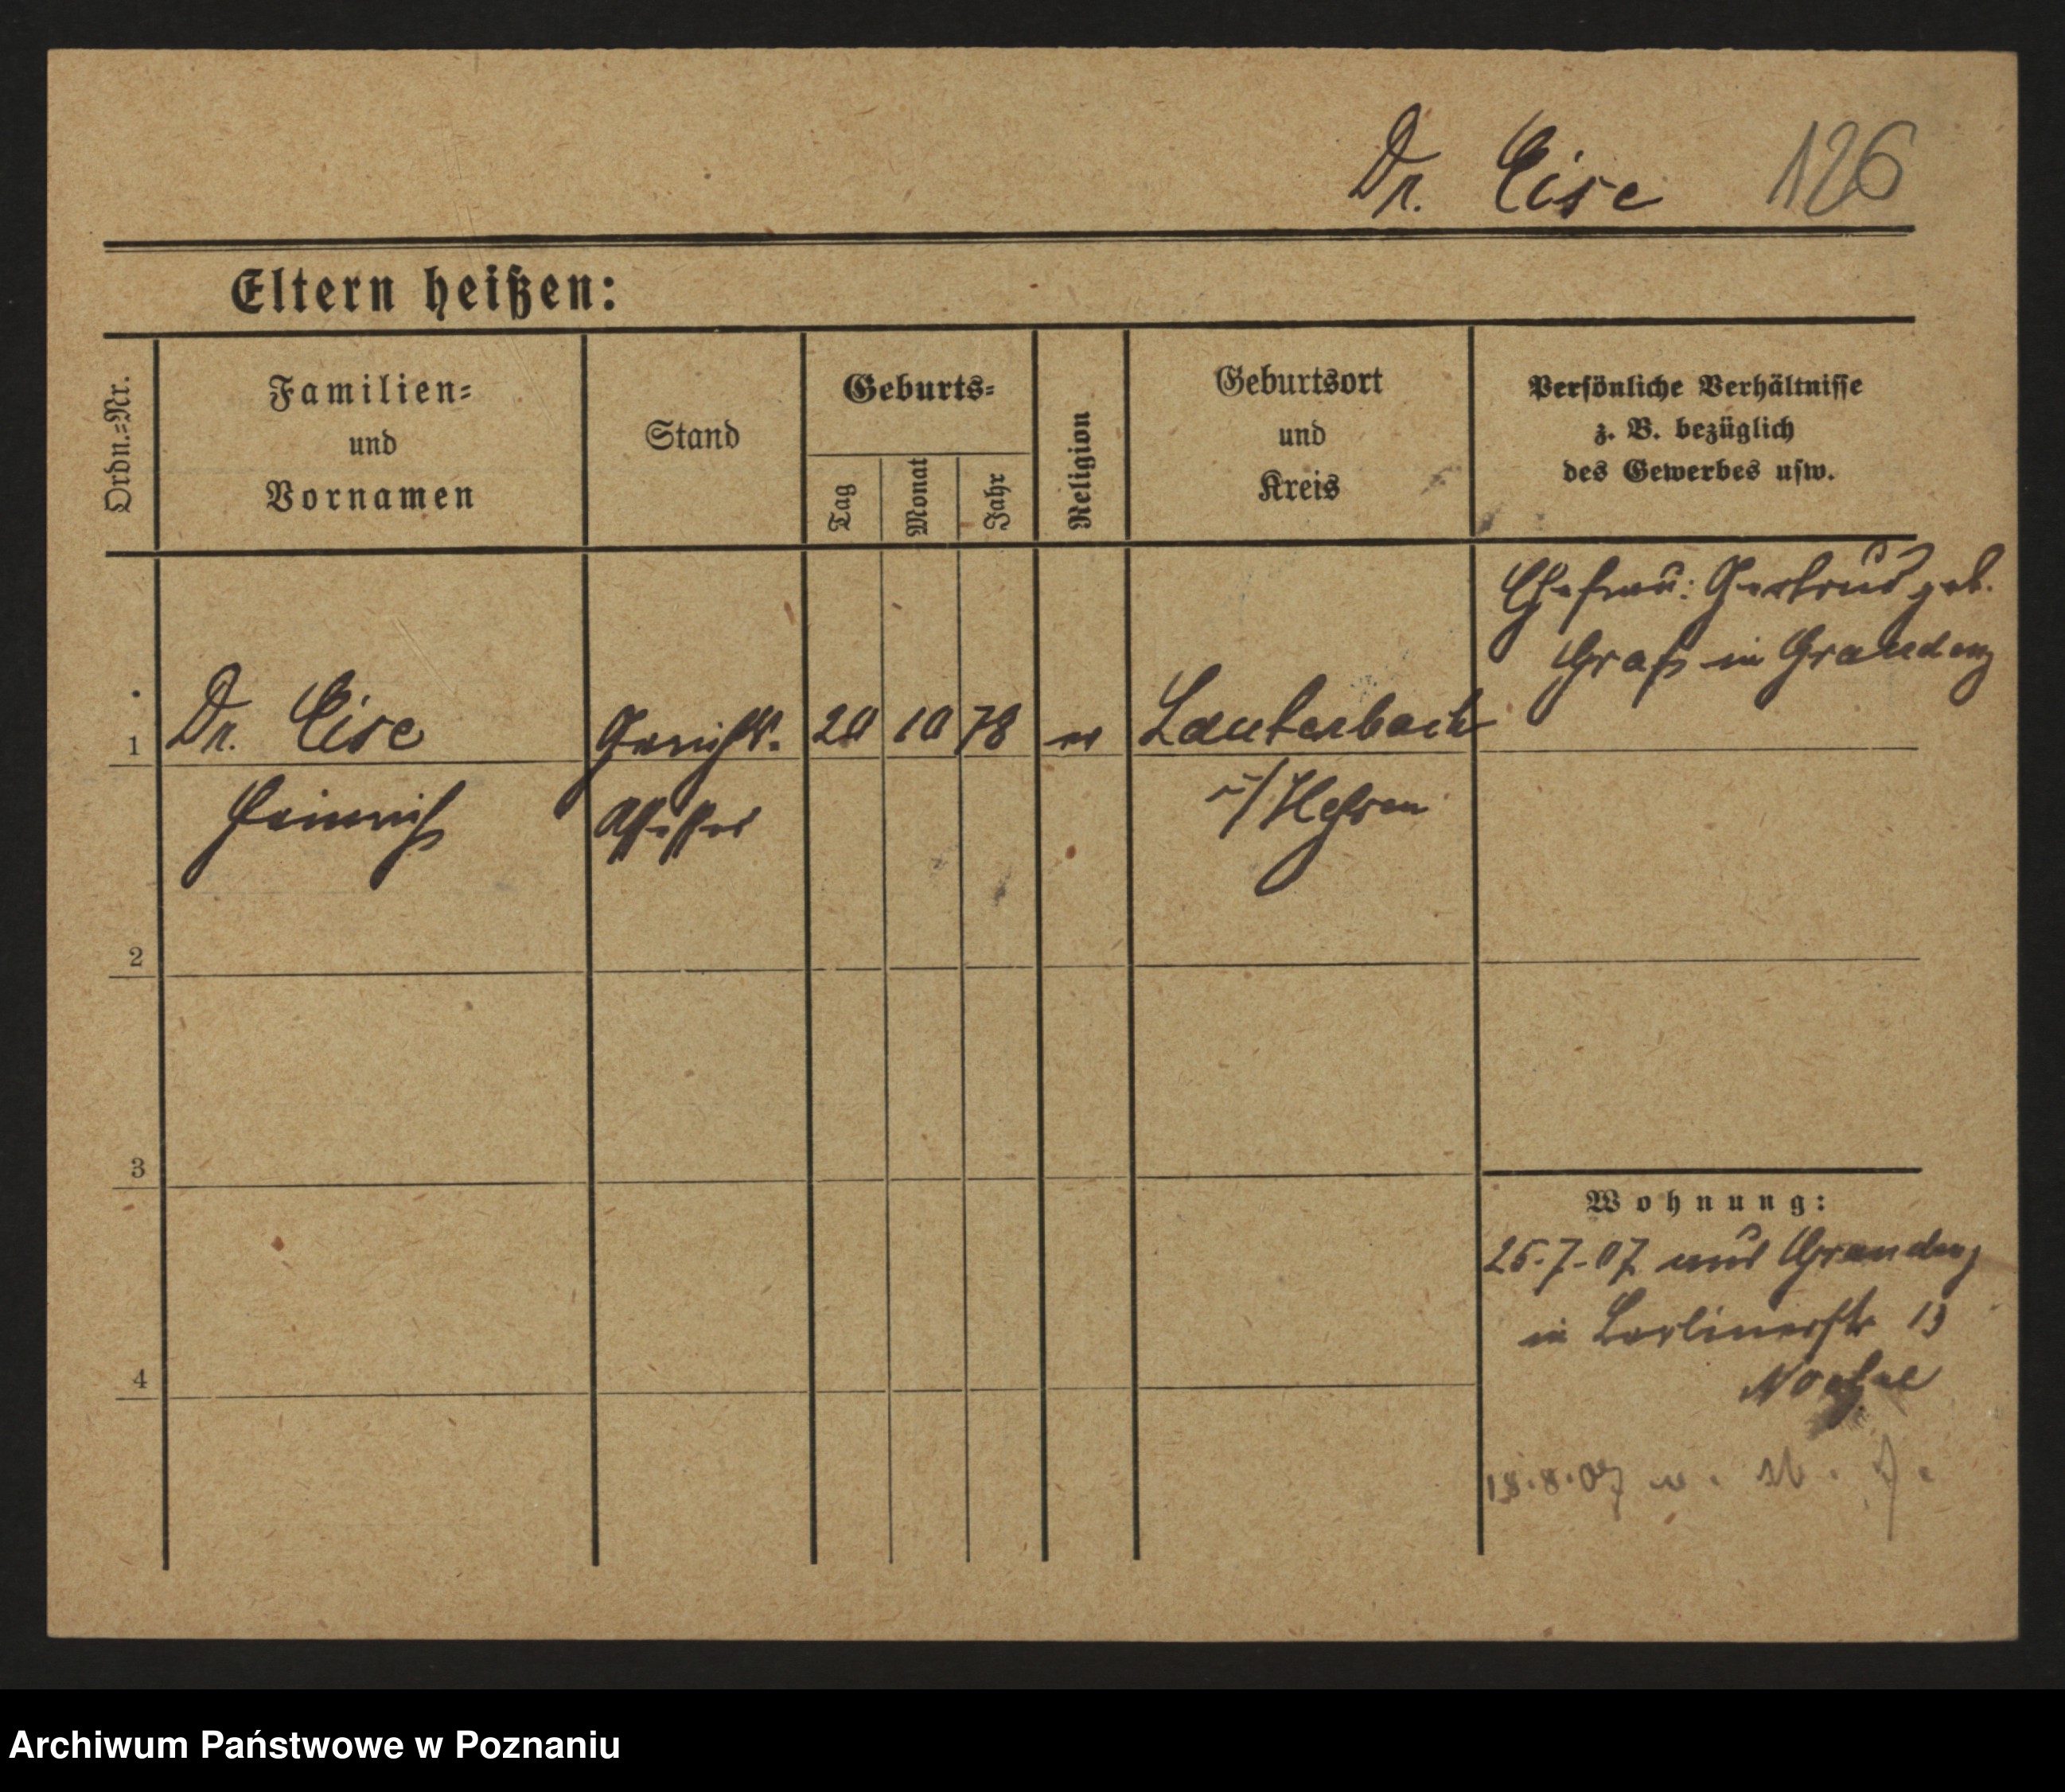 Dr. Eise 126
Eltern heißen:
Ordn.=Nr.
Familien=
und
Vornamen
Stand
Geburts=
Tag
Monat
Jahr
Religion
Geburtsort
und
Kreis
Persönliche Verhältnisse
z. B. bezüglich
des Gewerbes usw.
Ehefrau: Gertrud geb.
Graß in Graudenz
1 Dr. Eise Gerichts- 20 10 78 ev Lauterbach
Heinrich Assessor i/Hessen
2
3
4
Wohnung:
25-7-07 aus Graudenz
in Berlinerstr 13
18.8.07
Archiwum Państwowe w Poznaniu